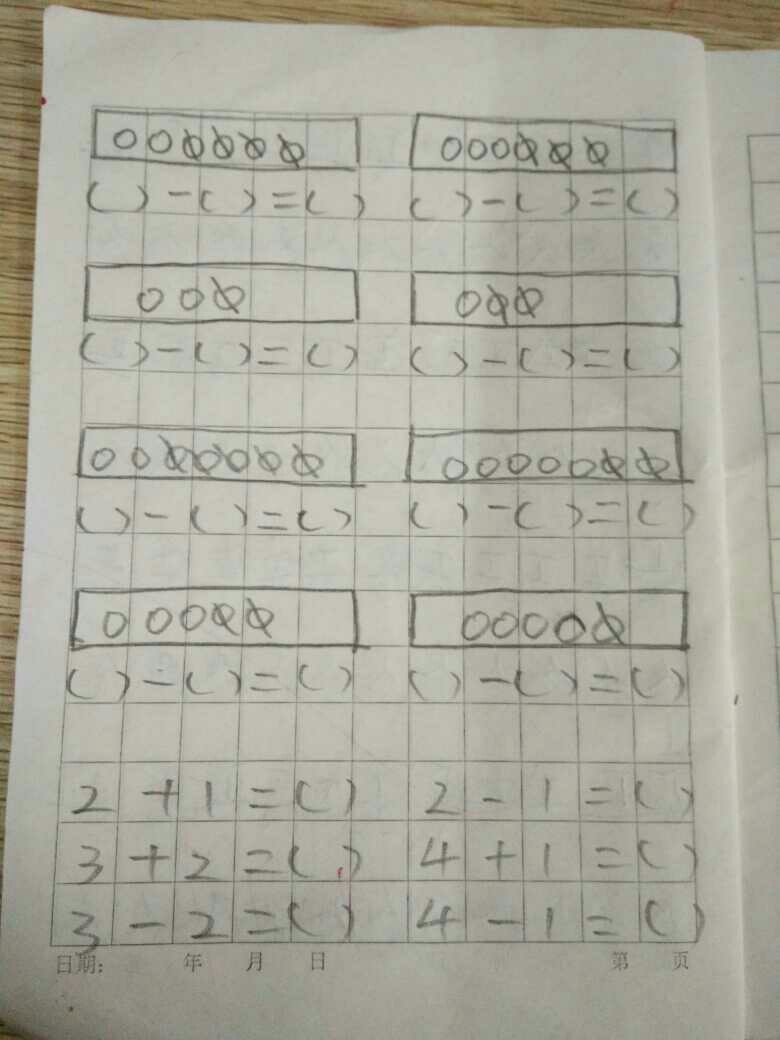 ( ) - ( ) = ( ) ( ) - ( ) = ( )
( ) - ( ) = ( ) ( ) - ( ) = ( )
( ) - ( ) = ( ) ( ) - ( ) = ( )
( ) - ( ) = ( ) ( ) - ( ) = ( )
2 + 1 = ( ) 2 - 1 = ( )
3 + 2 = ( ) 4 + 1 = ( )
3 - 2 = ( ) 4 - 1 = ( )
日期: 年 月 日 第 页